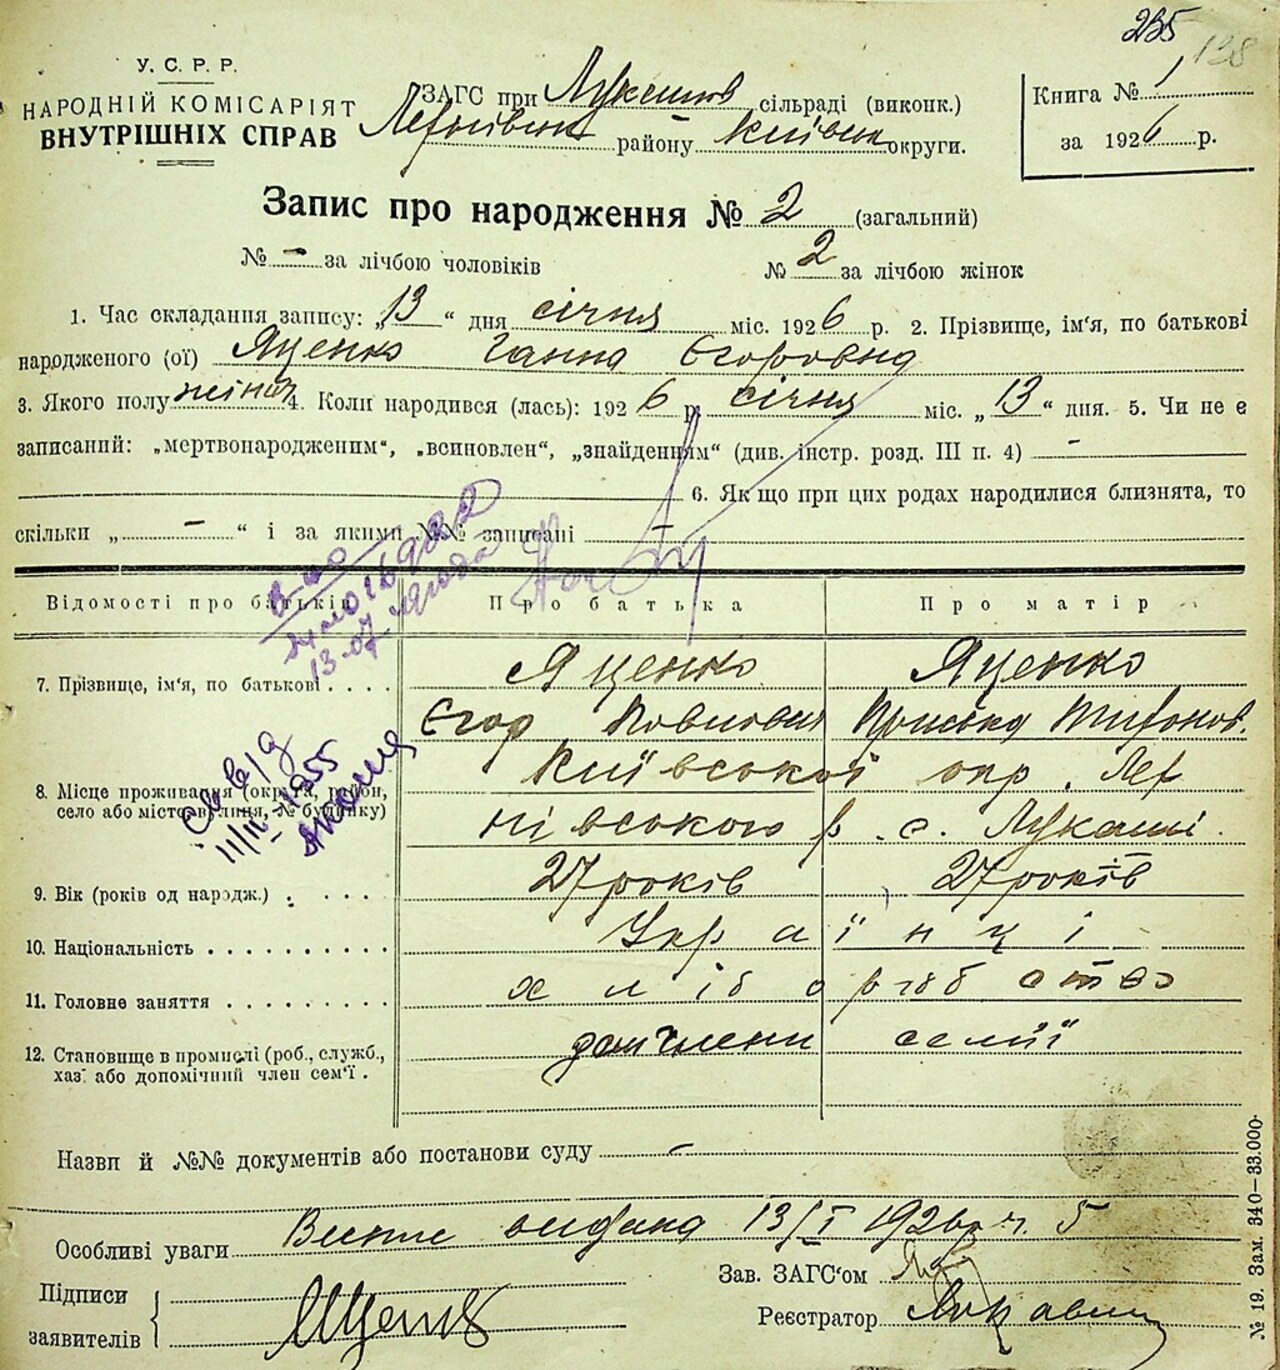 235
138
У. С. Р. Р.
НАРОДНІЙ КОМІСАРІЯТ
ВНУТРІШНІХ СПРАВ
ЗАГС при Лукашів сільраді (виконк.)
району Київськ округи.
Книга № 1
за 1926 р.
Запис про народження № 2 (загальний)
№ - за лічбою чоловіків № 2 за лічбою жінок
1. Час складання запису: „13“ дня січня міс. 1926 р. 2. Прізвище, ім'я, по батькові
народженого (ої) Яценко Ганна Єгоровна
3. Якого полу жіноч 4. Коли народився (лась): 1926 р. січня міс. „13“ дня. 5. Чи не є
записаний: „мертвонародженим“, „всиновлен“, „знайденням“ (див. інстр. розд. III п. 4) -
6. Якщо при цих родах народилися близнята, то
скільки „ - “ і за якими №№ записані -
Відомості про батьків Про батька Про матір
7. Прізвище, ім'я, по батькові . . . . Яценко Яценко
Єгор Павлович Приська Тифонов.
8. Місце проживання (округа, район, Київської окр.
село або місто, вулиця, № будинку) нівського р. с. Лукаші.
11/III-1955
9. Вік (років од народж.) . . . . 27 років 27 років
10. Національність . . . . . . . . . . Українці
11. Головне заняття . . . . . . . . . хліборобство
12. Становище в промислі (роб., служб., члени семії
хаз. або допомічний член сем'ї .
Назви й №№ документів або постанови суду -
Особливі уваги Випис видана 13/I 1926 р ч. 5
Підписи
заявителів
Зав. ЗАГС'ом
Реєстратор
№ 19. Зам. 340—33.000.